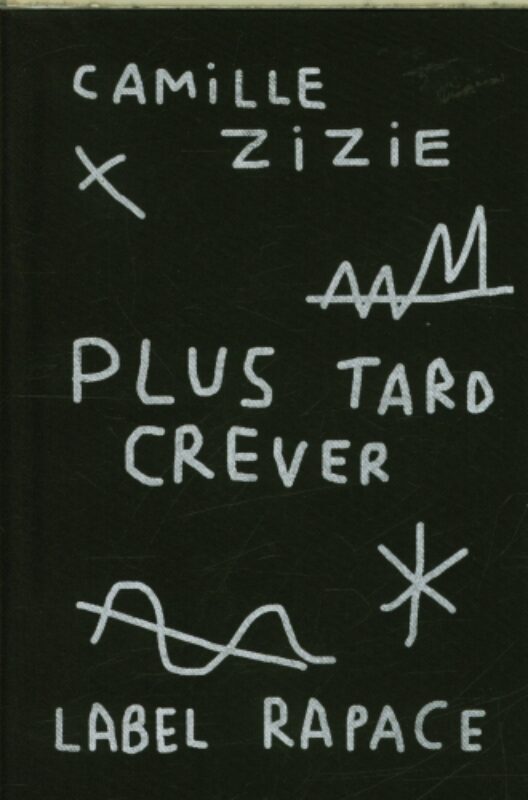 CAMiLLE
ZiZiE
PLUS TARD
CREVER
LABEL RAPACE